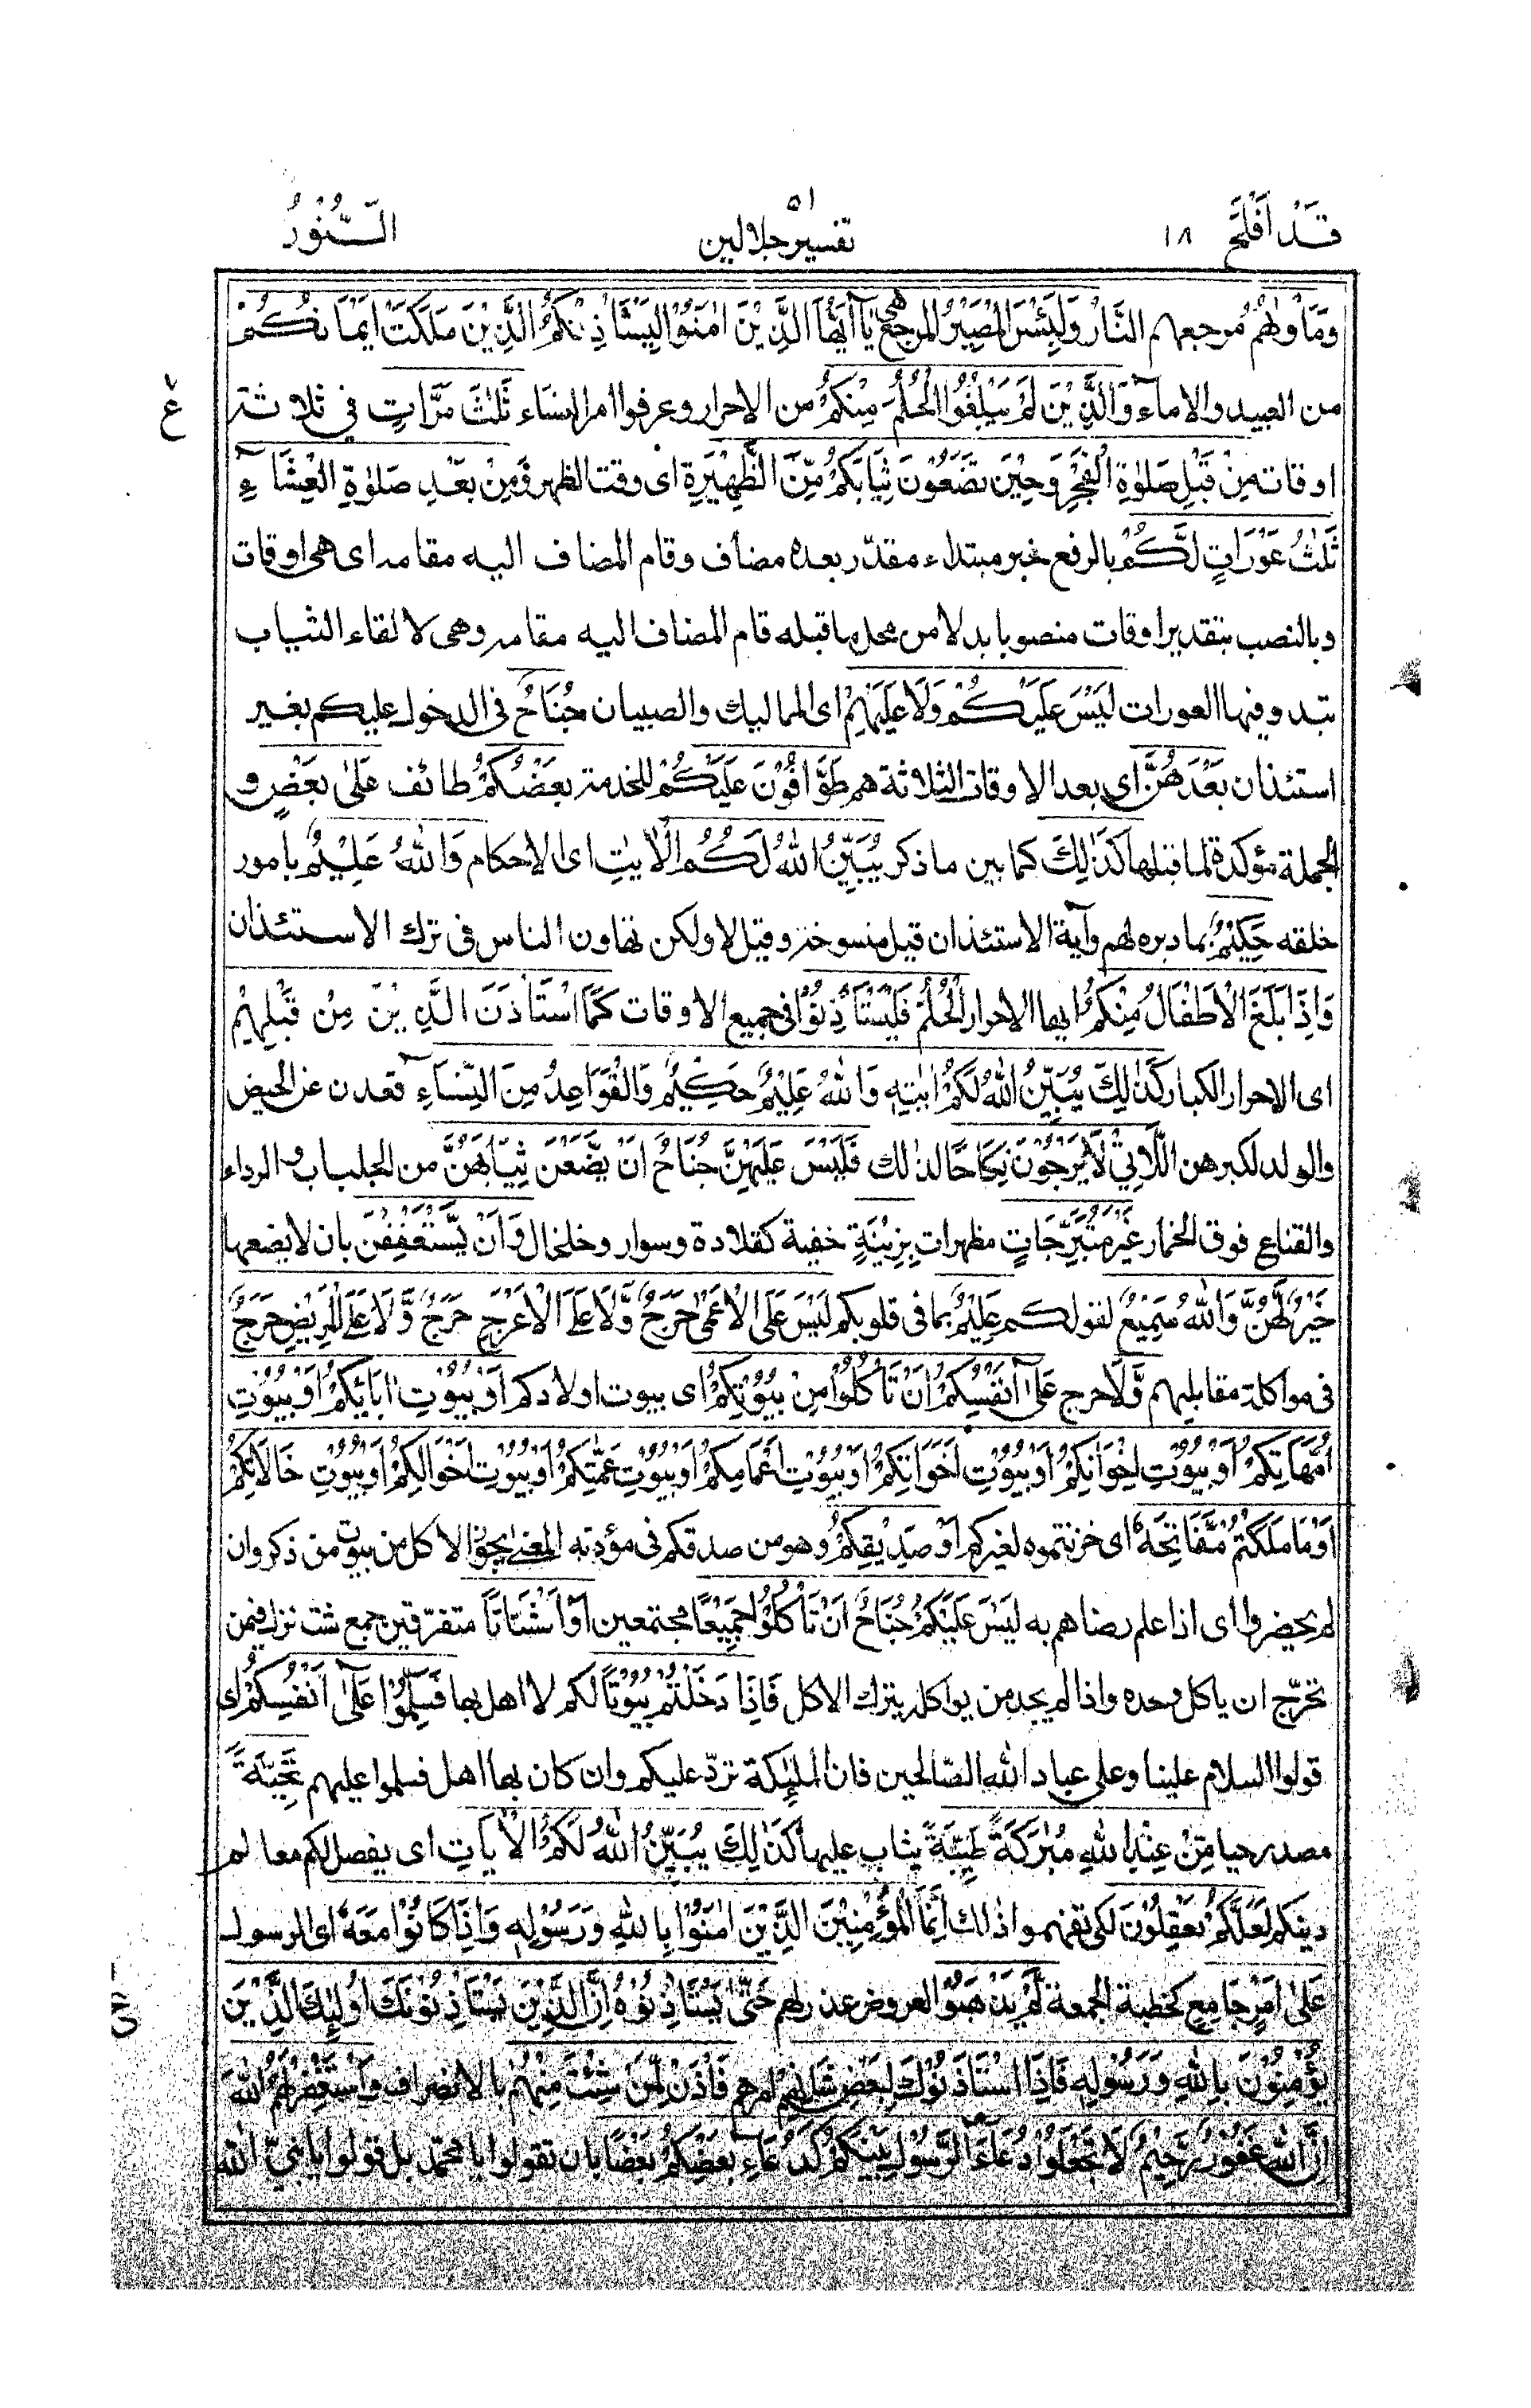 قَدْ اَفْلَحَ ١٨
٥١
تفسير جلالين
النُّوْرُ
وَمَأْوٰىهُمُ مرجعهم النَّارُ وَلَبِئْسَ الْمَصِيْرُ المرجع هى يَآ اَيُّهَا الَّذِيْنَ اٰمَنُوْا لِيَسْتَأْذِنْكُمُ الَّذِيْنَ مَلَكَتْ اَيْمَانُكُمْ
من العبيد والامآء وَالَّذِيْنَ لَمْ يَبْلُغُوا الْحُلُمَ مِنْكُمْ من الاحرار وعرفوا امر النساء ثَلٰثَ مَرَّاتٍ فى ثلاثة
ع
اوقاته مِنْ قَبْلِ صَلٰوةِ الْفَجْرِ وَحِيْنَ تَضَعُوْنَ ثِيَابَكُمْ مِّنَ الظَّهِيْرَةِ اى وقت الظهر وَمِنْ بَعْدِ صَلٰوةِ الْعِشَآءِ
ثَلٰثُ عَوْرَاتٍ لَّكُمْ بالرفع خبر مبتداء مقدّر بعده مضاف وقام المضاف اليه مقامه اى هى اوقات
وبالنصب بتقدير اوقات منصوبا بدلا من محل ما قبله قام المضاف اليه مقامه وهى لالقاء الثياب
تبدو فيها العورات لَيْسَ عَلَيْكُمْ وَلَا عَلَيْهِمْ اى المماليك والصبيان جُنَاحٌ فى الدخول عليكم بغير
استئذان بَعْدَهُنَّ اى بعد الاوقات الثلاثة هم طَوَّافُوْنَ عَلَيْكُمْ للخدمة بَعْضُكُمْ طائف عَلٰى بَعْضٍ و
الجملة مؤكدة لما قبلها كَذٰلِكَ كما بين ما ذكر يُبَيِّنُ اللّٰهُ لَكُمُ الْاٰيٰتِ اى الاحكام وَاللّٰهُ عَلِيْمٌ بامور
خلقه حَكِيْمٌ بما دبره لهم وآية الاستئذان قيل منسوخة وقيل لا ولكن تهاون الناس فى ترك الاستئذان
وَاِذَا بَلَغَ الْاَطْفَالُ مِنْكُمُ ايها الاحرار الْحُلُمَ فَلْيَسْتَأْذِنُوْا فى جميع الاوقات كَمَا اسْتَأْذَنَ الَّذِيْنَ مِنْ قَبْلِهِمْ
اى الاحرار الكبار كَذٰلِكَ يُبَيِّنُ اللّٰهُ لَكُمْ اٰيٰتِهٖ وَاللّٰهُ عَلِيْمٌ حَكِيْمٌ وَالْقَوَاعِدُ مِنَ النِّسَآءِ قعدن عن الحيض
والولد لكبرهن اللَّاتِىْ لَا يَرْجُوْنَ نِكَاحًا لذلك فَلَيْسَ عَلَيْهِنَّ جُنَاحٌ اَنْ يَّضَعْنَ ثِيَابَهُنَّ من الجلباب والرداء
والقناع فوق الخمار غَيْرَ مُتَبَرِّجَاتٍ مظهرات بِزِيْنَةٍ خفية كقلادة وسوار وخلخال وَاَنْ يَّسْتَعْفِفْنَ بان لا يضعنها
خَيْرٌ لَّهُنَّ وَاللّٰهُ سَمِيْعٌ لقولكم عَلِيْمٌ بما فى قلوبكم لَيْسَ عَلَى الْاَعْمٰى حَرَجٌ وَّلَا عَلَى الْاَعْرَجِ حَرَجٌ وَّلَا عَلَى الْمَرِيْضِ حَرَجٌ
فى مواكلة مقابليهم وَّلَا حرج عَلٰٓى اَنْفُسِكُمْ اَنْ تَأْكُلُوْا مِنْ بُيُوْتِكُمْ اى بيوت اولادكم اَوْ بُيُوْتِ اٰبَآئِكُمْ اَوْ بُيُوْتِ
اُمَّهَاتِكُمْ اَوْ بُيُوْتِ اِخْوَانِكُمْ اَوْ بُيُوْتِ اَخَوَاتِكُمْ اَوْ بُيُوْتِ اَعْمَامِكُمْ اَوْ بُيُوْتِ عَمّٰتِكُمْ اَوْ بُيُوْتِ اَخْوَالِكُمْ اَوْ بُيُوْتِ خَالَاتِكُمْ
اَوْ مَا مَلَكْتُمْ مَّفَاتِحَهٗ اى خزنتموه لغيركم اَوْ صَدِيْقِكُمْ وهو من صدقكم فى مؤدته المعنى يجوز الاكل من بيوت من ذكر وان
لم يحضروا اى اذا علم رضاهم به لَيْسَ عَلَيْكُمْ جُنَاحٌ اَنْ تَأْكُلُوْا جَمِيْعًا مجتمعين اَوْ اَشْتَاتًا متفرّقين جمع شت نزل فيمن
تحرّج ان ياكل وحده واذا لم يجد من يواكله يترك الاكل فَاِذَا دَخَلْتُمْ بُيُوْتًا لكم لا اهل بها فَسَلِّمُوْا عَلٰٓى اَنْفُسِكُمْ اى
قولوا السلام علينا وعلى عباد الله الصّالحين فان الملٰئكة تردّ عليكم وان كان بها اهل فسلموا عليهم تَحِيَّةً
مصدر حيا مِّنْ عِنْدِ اللّٰهِ مُبٰرَكَةً طَيِّبَةً يثاب عليها كَذٰلِكَ يُبَيِّنُ اللّٰهُ لَكُمُ الْاٰيَاتِ اى يفصل لكم معالم
دينكم لَعَلَّكُمْ تَعْقِلُوْنَ لكى تفهموا ذلك اِنَّمَا الْمُؤْمِنِيْنَ الَّذِيْنَ اٰمَنُوْا بِاللّٰهِ وَرَسُوْلِهٖ وَاِذَا كَانُوْا مَعَهٗ اى الرسول
عَلٰى اَمْرٍ جَامِعٍ كخطبة الجمعة لَّمْ يَذْهَبُوْا لعروض عذر لهم حَتّٰى يَسْتَأْذِنُوْهُ اِنَّ الَّذِيْنَ يَسْتَأْذِنُوْنَكَ اُولٰٓئِكَ الَّذِيْنَ
يُؤْمِنُوْنَ بِاللّٰهِ وَرَسُوْلِهٖ فَاِذَا اسْتَأْذَنُوْكَ لِبَعْضِ شَأْنِهِمْ امرهم فَأْذَنْ لِّمَنْ شِئْتَ مِنْهُمْ بالانصراف وَاسْتَغْفِرْ لَهُمُ اللّٰهَ
اِنَّ اللّٰهَ غَفُوْرٌ رَّحِيْمٌ لَا تَجْعَلُوْا دُعَآءَ الرَّسُوْلِ بَيْنَكُمْ كَدُعَآءِ بَعْضِكُمْ بَعْضًا بان تقولوا يا محمّد بل قولوا يا نبىّ الله